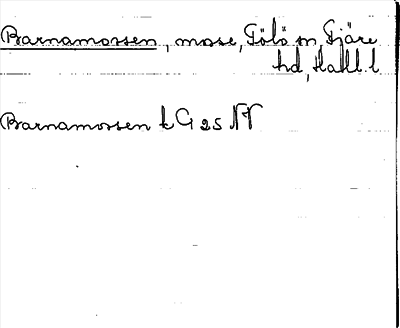 Barnamossen, mosse, Fölö sn, Fjäre
hd, Hall. l
Barnamossen k G 25 NV